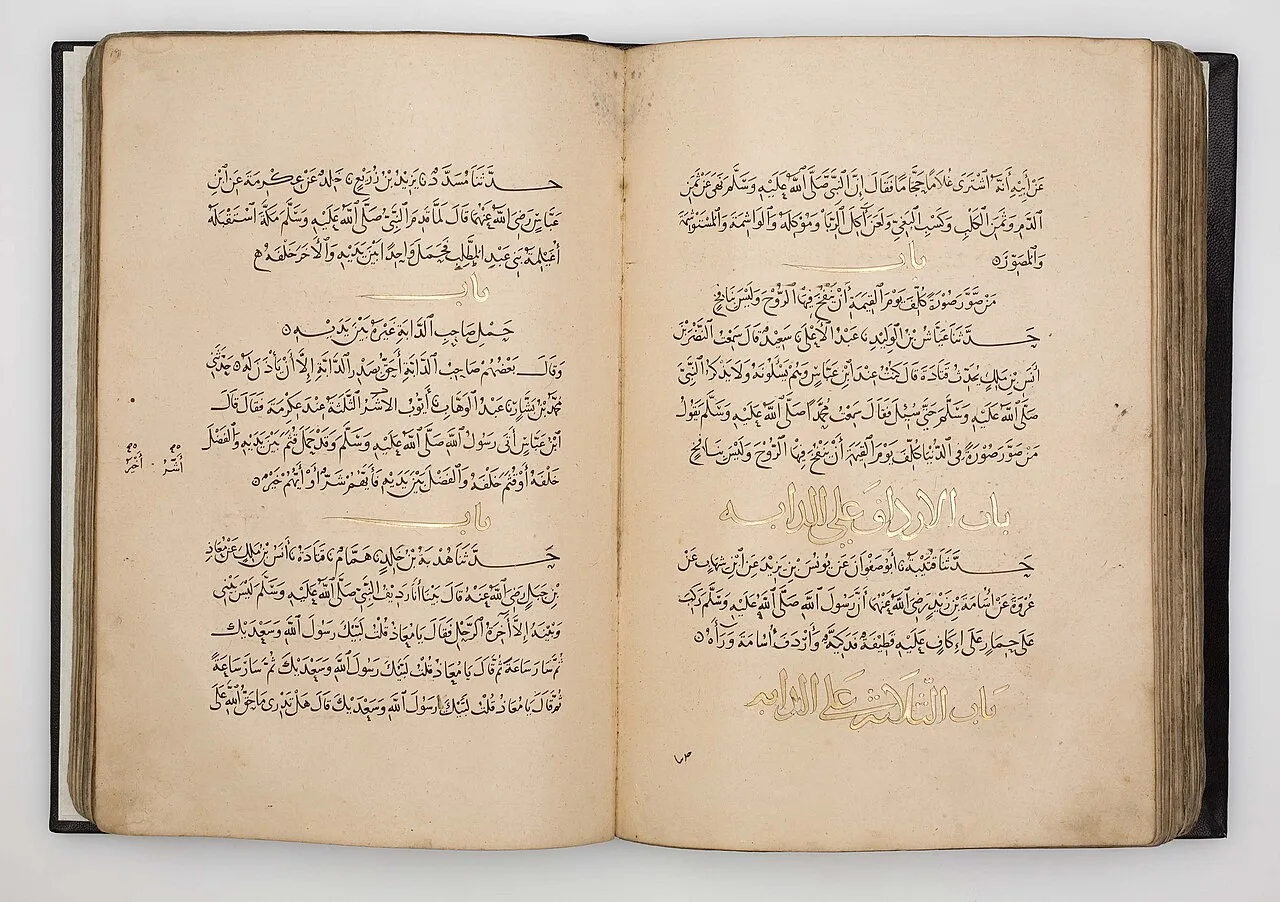 عَنْ أَبِيهِ أَنَّهُ اشْتَرَى غُلَامًا حَجَّامًا فَقَالَ إِنَّ النَّبِيَّ صَلَّى اللَّهُ عَلَيْهِ وَسَلَّمَ نَهَى عَنْ ثَمَنِ
الدَّمِ وَثَمَنِ الْكَلْبِ وَكَسْبِ الْبَغِيِّ وَلَعَنَ آكِلَ الرِّبَا وَمُوكِلَهُ وَالْوَاشِمَةَ وَالْمُسْتَوْشِمَةَ
وَالْمُصَوِّرَ
باب
مَنْ صَوَّرَ صُورَةً كُلِّفَ يَوْمَ الْقِيٰمَةِ أَنْ يَنْفُخَ فِيهَا الرُّوحَ وَلَيْسَ بِنَافِخٍ
حَدَّثَنَا عَيَّاشُ بْنُ الْوَلِيدِ عَبْدُ الْأَعْلَى سَعِيدٌ قَالَ سَمِعْتُ النَّضْرَ بْنَ
أَنَسِ بْنِ مٰلِكٍ يُحَدِّثُ قَتَادَةَ قَالَ كُنْتُ عِنْدَ ابْنِ عَبَّاسٍ وَهُمْ يَسْأَلُونَهُ وَلَا يَذْكُرُ النَّبِيَّ
صَلَّى اللَّهُ عَلَيْهِ وَسَلَّمَ حَتَّى سُئِلَ فَقَالَ سَمِعْتُ مُحَمَّدًا صَلَّى اللَّهُ عَلَيْهِ وَسَلَّمَ يَقُولُ
مَنْ صَوَّرَ صُورَةً فِي الدُّنْيَا كُلِّفَ يَوْمَ الْقِيٰمَةِ أَنْ يَنْفُخَ فِيهَا الرُّوحَ وَلَيْسَ بِنَافِخٍ
باب الارداف على الدابه
حَدَّثَنَا قُتَيْبَةُ أَبُو صَفْوَانَ عَنْ يُونُسَ بْنِ يَزِيدَ عَنِ ابْنِ شِهَابٍ عَنْ
عُرْوَةَ عَنْ أُسَامَةَ بْنِ زَيْدٍ رَضِيَ اللَّهُ عَنْهُمَا أَنَّ رَسُولَ اللَّهِ صَلَّى اللَّهُ عَلَيْهِ وَسَلَّمَ رَكِبَ
عَلَى حِمَارٍ عَلَى إِكَافٍ عَلَيْهِ قَطِيفَةٌ فَدَكِيَّةٌ وَأَرْدَفَ أُسَامَةَ وَرَاءَهُ
باب الثَّلَاثَةِ عَلَى الدابه
حَدَّثَنَا مُسَدَّدٌ يَزِيدُ بْنُ زُرَيْعٍ خٰلِدٌ عَنْ عِكْرِمَةَ عَنِ ابْنِ
عَبَّاسٍ رَضِيَ اللَّهُ عَنْهُمَا قَالَ لَمَّا قَدِمَ النَّبِيُّ صَلَّى اللَّهُ عَلَيْهِ وَسَلَّمَ مَكَّةَ اسْتَقْبَلَهُ
أُغَيْلِمَةُ بَنِي عَبْدِ الْمُطَّلِبِ فَحَمَلَ وَاحِدًا بَيْنَ يَدَيْهِ وَالْآخَرَ خَلْفَهُ
باب
حَمْلِ صَاحِبِ الدَّابَّةِ غَيْرَهُ بَيْنَ يَدَيْهِ
وَقَالَ بَعْضُهُمْ صَاحِبُ الدَّابَّةِ أَحَقُّ بِصَدْرِ الدَّابَّةِ إِلَّا أَنْ يَأْذَنَ لَهُ حَدَّثَنِي
مُحَمَّدُ بْنُ بَشَّارٍ عَبْدُ الْوَهَّابِ أَيُّوبُ الْأَشَرُّ الثَّلٰثَةِ عِنْدَ عِكْرِمَةَ فَقَالَ قَالَ
ابْنُ عَبَّاسٍ أَتَى رَسُولُ اللَّهِ صَلَّى اللَّهُ عَلَيْهِ وَسَلَّمَ وَقَدْ حَمَلَ قُثَمَ بَيْنَ يَدَيْهِ وَالْفَضْلَ
خَلْفَهُ أَوْ قُثَمَ خَلْفَهُ وَالْفَضْلَ بَيْنَ يَدَيْهِ فَأَيُّهُمْ شَرٌّ أَوْ أَيُّهُمْ خَيْرٌ
أَشَرُّ
أَخْيَرُ
باب
حَدَّثَنَا هُدْبَةُ بْنُ خَالِدٍ هَمَّامٌ قَتَادَةُ أَنَسُ بْنُ مٰلِكٍ عَنْ مُعَاذِ
بْنِ جَبَلٍ رَضِيَ اللَّهُ عَنْهُ قَالَ بَيْنَا أَنَا رَدِيفُ النَّبِيِّ صَلَّى اللَّهُ عَلَيْهِ وَسَلَّمَ لَيْسَ بَيْنِي
وَبَيْنَهُ إِلَّا أَخِرَةُ الرَّحْلِ فَقَالَ يَا مُعَاذُ قُلْتُ لَبَّيْكَ رَسُولَ اللَّهِ وَسَعْدَيْكَ
ثُمَّ سَارَ سَاعَةً ثُمَّ قَالَ يَا مُعَاذُ قُلْتُ لَبَّيْكَ رَسُولَ اللَّهِ وَسَعْدَيْكَ ثُمَّ سَارَ سَاعَةً
ثُمَّ قَالَ يَا مُعَاذُ قُلْتُ لَبَّيْكَ رَسُولَ اللَّهِ وَسَعْدَيْكَ قَالَ هَلْ تَدْرِي مَا حَقُّ اللَّهِ عَلَى